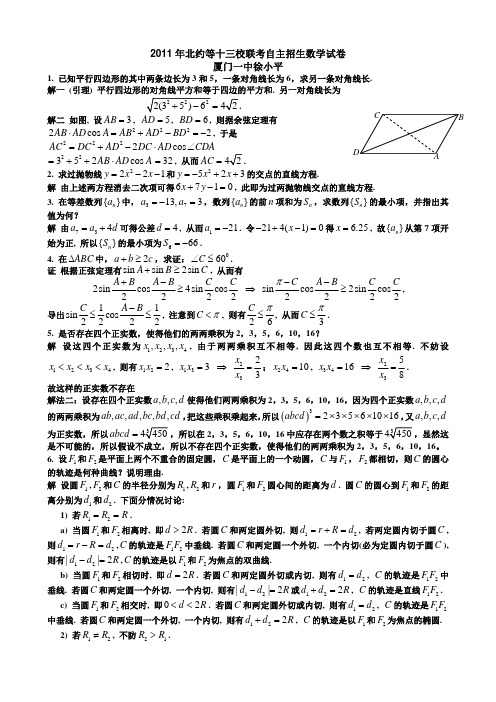 2011年北约等十三校联考自主招生数学试卷
厦门一中徐小平
1. 已知平行四边形的其中两条边长为3和5，一条对角线长为6，求另一条对角线长.
解一 (引理) 平行四边形的对角线平方和等于四边的平方和. 另一对角线长为
√(2(3²+5²)−6²) = 4√2.
解二 如图, 设AB=3，AD=5，BD=6，则据余弦定理有
2AB·AD cos A = AB²+AD²−BD² = −2，于是
AC² = DC²+AD²−2DC·AD cos∠CDA
= 3²+5²+2AB·AD cos A = 32，从而AC = 4√2.
C
B
D
A
2. 求过抛物线y=2x²−2x−1和y=−5x²+2x+3的交点的直线方程.
解 由上述两方程消去二次项可得6x+7y−1=0，此即为过两抛物线交点的直线方程.
3. 在等差数列{aₙ}中，a₃=−13, a₇=3，数列{aₙ}的前n项和为Sₙ，求数列{Sₙ}的最小项，并指出其
值为何？
解 由a₇=a₃+4d可得公差d=4，从而a₁=−21. 令−21+4(x−1)=0得x=6.25，故{aₙ}从第7项开
始为正. 所以{Sₙ}的最小项为S₆=−66.
4. 在△ABC中，a+b≥2c，求证：∠C≤60⁰.
证 根据正弦定理有sin A+sin B≥2sin C，从而有
2sin (A+B)/2 cos (A−B)/2 ≥ 4sin C/2 cos C/2 ⇒ sin (π−C)/2 cos (A−B)/2 ≥ 2sin C/2 cos C/2，
导出sin C/2 ≤ 1/2 cos (A−B)/2 ≤ 1/2，注意到C<π，则有C/2 ≤ π/6，从而C ≤ π/3.
5. 是否存在四个正实数，使得他们的两两乘积为2，3，5，6，10，16？
解 设这四个正实数为x₁,x₂,x₃,x₄，由于两两乘积互不相等, 因此这四个数也互不相等. 不妨设
x₁<x₂<x₃<x₄，则有x₁x₂=2，x₁x₃=3 ⇒ x₂/x₃=2/3；x₂x₄=10，x₃x₄=16 ⇒ x₂/x₃=5/8.
故这样的正实数不存在
解法二：设存在四个正实数a,b,c,d使得他们两两乘积为2，3，5，6，10，16，因为四个正实数a,b,c,d
的两两乘积为ab,ac,ad,bc,bd,cd，把这些乘积乘起来，所以(abcd)³=2×3×5×6×10×16，又a,b,c,d
为正实数，所以abcd=4∛450，所以在2，3，5，6，10，16中应存在两个数之积等于4∛450，显然这
是不可能的，所以假设不成立，所以不存在四个正实数，使得他们的两两乘积为2，3，5，6，10，16。
6. 设F₁和F₂是平面上两个不重合的固定圆，C是平面上的一个动圆，C与F₁，F₂都相切，则C的圆心
的轨迹是何种曲线？说明理由.
解 设圆F₁,F₂和C的半径分别为R₁,R₂和r，圆F₁和F₂圆心间的距离为d. 圆C的圆心到F₁和F₂的距
离分别为d₁和d₂. 下面分情况讨论:
1) 若R₁=R₂=R.
a) 当圆F₁和F₂相离时, 即d>2R. 若圆C和两定圆外切, 则d₁=r+R=d₂，若两定圆内切于圆C，
则d₁=r−R=d₂, C的轨迹是F₁F₂中垂线. 若圆C和两定圆一个外切, 一个内切(必为定圆内切于圆C)，
则有|d₁−d₂|=2R, C的轨迹是以F₁和F₂为焦点的双曲线.
b) 当圆F₁和F₂相切时, 即d=2R. 若圆C和两定圆外切或内切, 则有d₁=d₂，C的轨迹是F₁F₂中
垂线. 若圆C和两定圆一个外切, 一个内切, 则有|d₁−d₂|=2R或d₁+d₂=2R，C的轨迹是直线F₁F₂.
c) 当圆F₁和F₂相交时, 即0<d<2R. 若圆C和两定圆外切或内切, 则有d₁=d₂，C的轨迹是F₁F₂
中垂线. 若圆C和两定圆一个外切, 一个内切, 则有d₁+d₂=2R，C的轨迹是以F₁和F₂为焦点的椭圆.
2) 若R₁≠R₂，不防R₂>R₁.